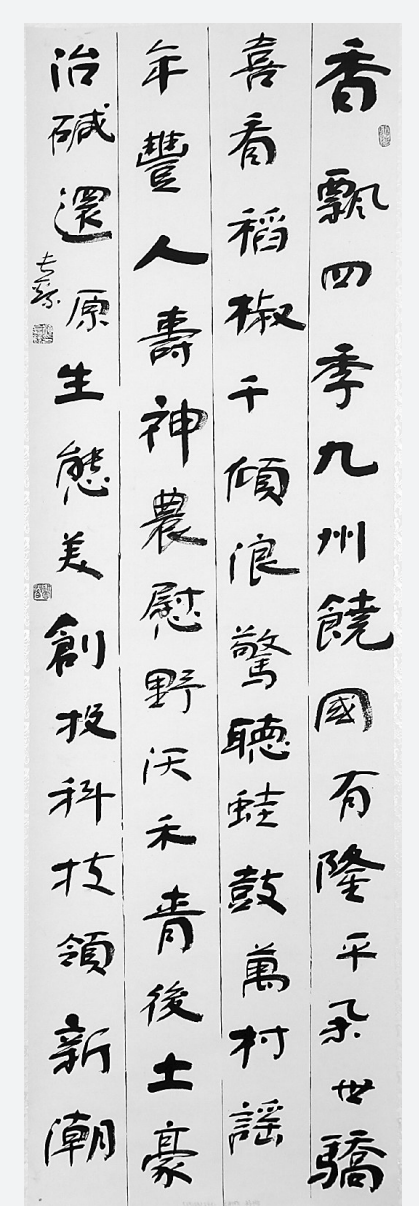 香飄四季九州饒國有隆平舉世驕
喜看稻椒千傾浪驚聽蛙鼓萬村謠
年豐人壽神農慰野沃禾青後土豪
治碱還原生態美創投科技領新潮